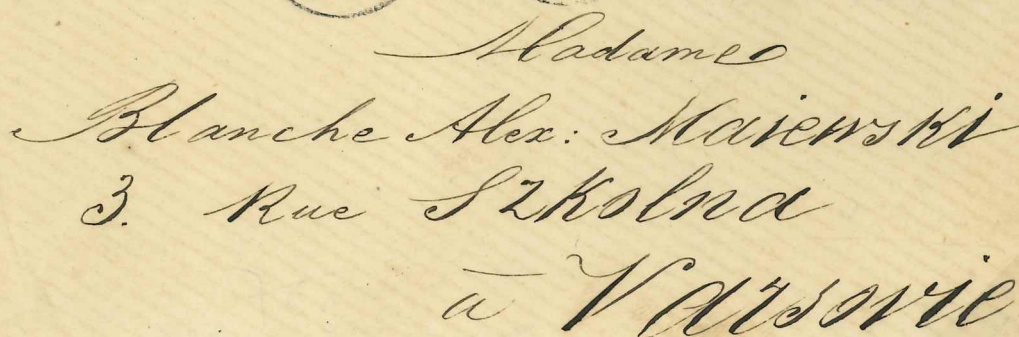 Madame
Blanche Alex: Maiewski
3. Rue Szkolna
à Varsovie